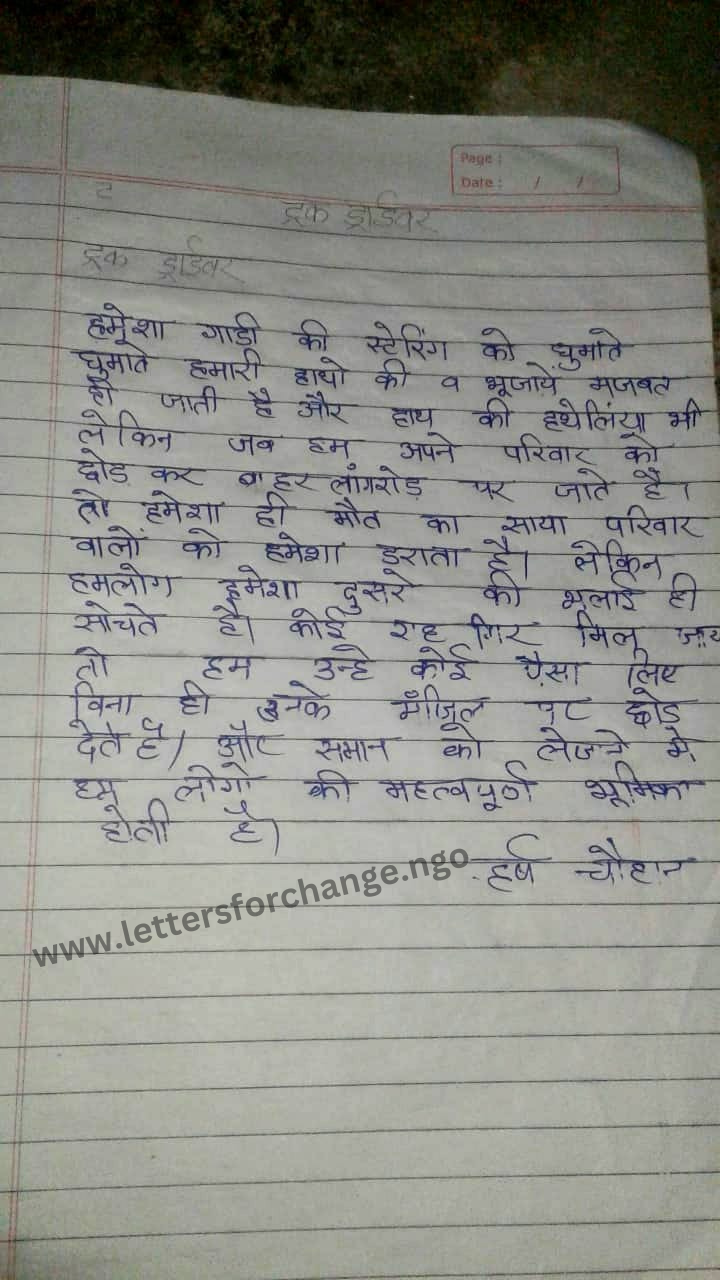 Page :
Date : / /
ट
ट्रक ड्राईवर
ट्रक ड्राईवर
हमेशा गाडी की स्टेरिंग को घुमाते
घुमाते हमारी हाथो की व भूजायें मजबत
हो जाती है और हाथ की हथेलिंया भी
लेकिन जब हम अपने परिवार को
छोड़ कर बाहर लांगरोड़ पर जाते है।
तो हमेशा ही मौत का साया परिवार
वालों को हमेशा डराता है। लेकिन
हमलोग हमेशा दुसरे की भलाई ही
सोचते है। कोई राह गिर मिल जाय
तो हम उन्हे कोई पैसा लिए
बिना ही उनके मंजिल पर छोड़
देते है। और समान को लेजाने मे
हम लोगो की महत्वपूर्ण भूमिका
होती है।
- हर्ष चौहान
www.lettersforchange.ngo